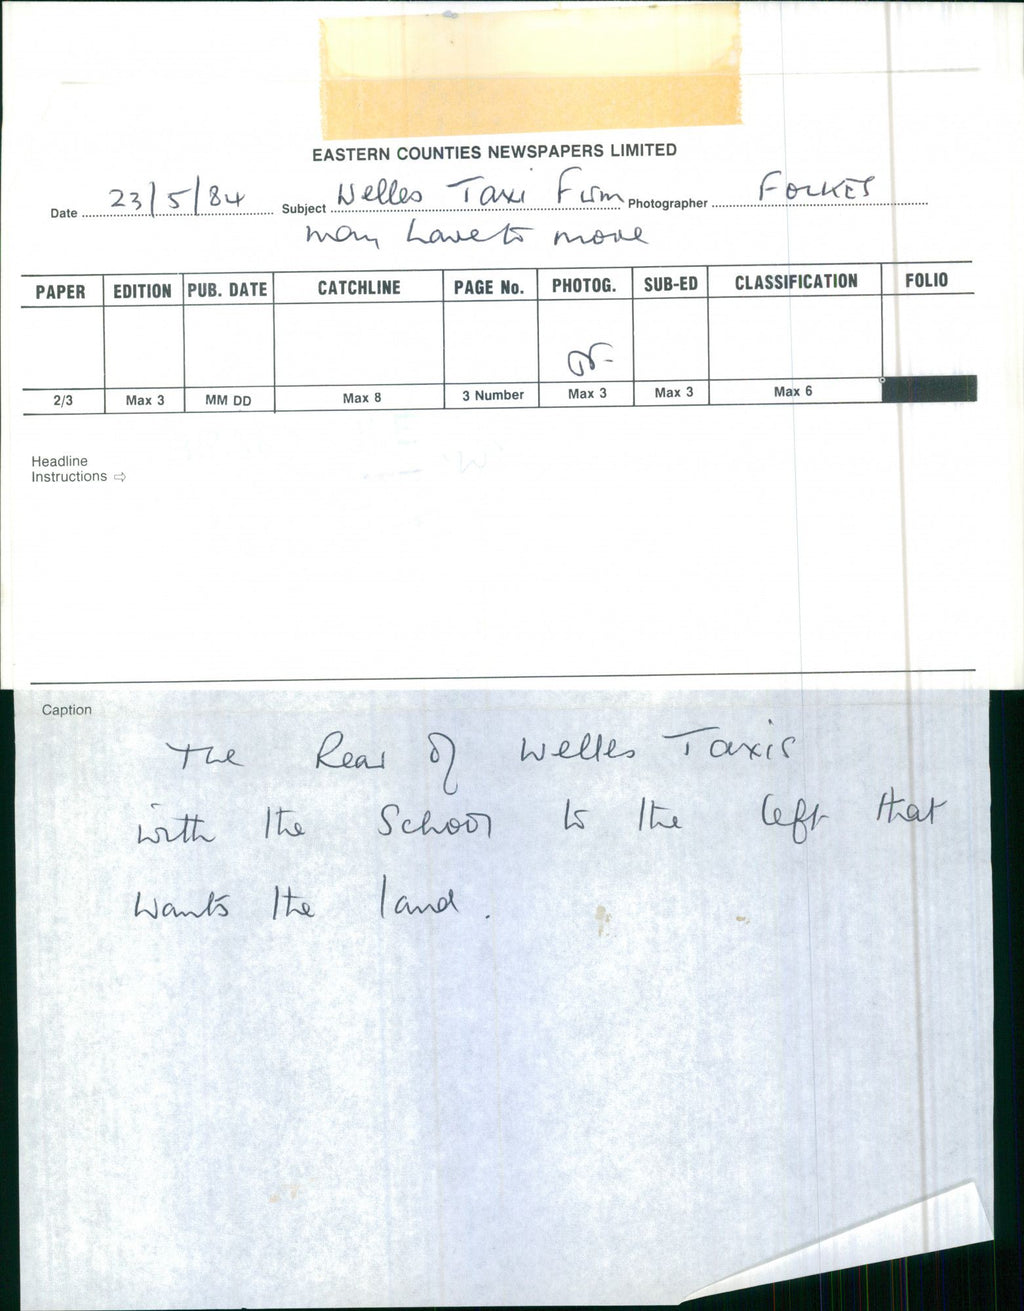 EASTERN COUNTIES NEWSPAPERS LIMITED
Date 23/5/84 Subject Welles Taxi Firm Photographer FOLKES
may have to move
PAPER EDITION PUB. DATE CATCHLINE PAGE No. PHOTOG. SUB-ED CLASSIFICATION FOLIO
2/3 Max 3 MM DD Max 8 3 Number Max 3 Max 3 Max 6
Headline
Instructions ⇨
Caption
The Rear of Welles Taxis
with the School to the left that
wants the land.